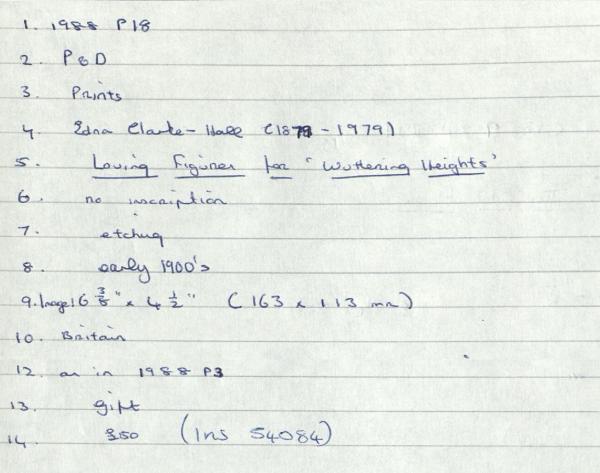 1. 1988 P18
2. P&D
3. Prints
4. Edna Clarke-Hall (1879-1979)
5. Loving Figures for 'Wuthering Heights'
6. no inscription
7. etching
8. early 1900's
9. Image: 6 3/8" x 4 1/2" (163 x 113 mm)
10. Britain
12. as in 1988 P3
13. gift
14. £50 (Ins 54084)